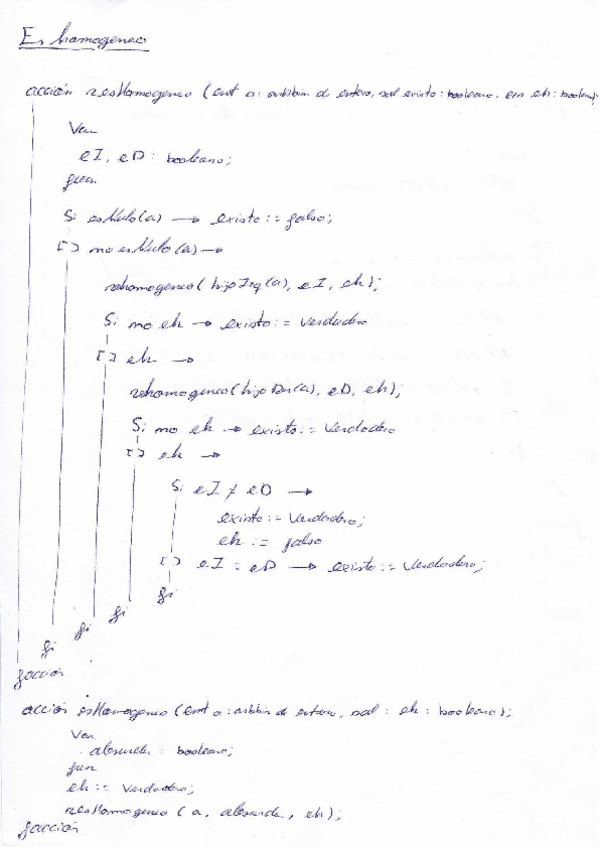 Es homogeneo
acción resHomogeneo (ent a: arbbin de entero, sal existo: booleano, em eh: booleano)
Var
eI, eD: booleano;
fvar
Si esNulo(a) → existo := falso;
[] no esNulo(a) →
rehomogeneo(hijoIzq(a), eI, eh);
Si no eh → existo := Verdadero
[] eh →
rehomogeneo(hijoDer(a), eD, eh);
Si no eh → existo := Verdadero
[] eh →
Si eI ≠ eD →
existo := Verdadero;
eh := falso
[] eI = eD → existo := Verdadero;
fi
fi
fi
fi
facción
acción esHomogeneo (ent a: arbbin de entero, sal: eh: booleano);
Var
: booleano;
fvar
eh := Verdadero;
resHomogeneo (a, , eh);
facción